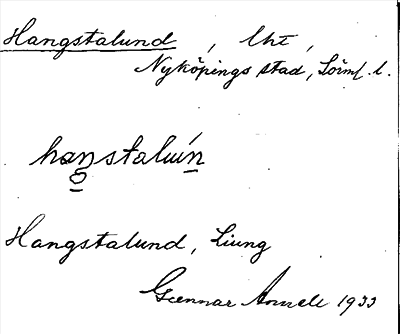 Hangstalund, lht,
Nyköpings stad, Sörml. l.
Hangstalund, Liung
Gunnar Annell 1933